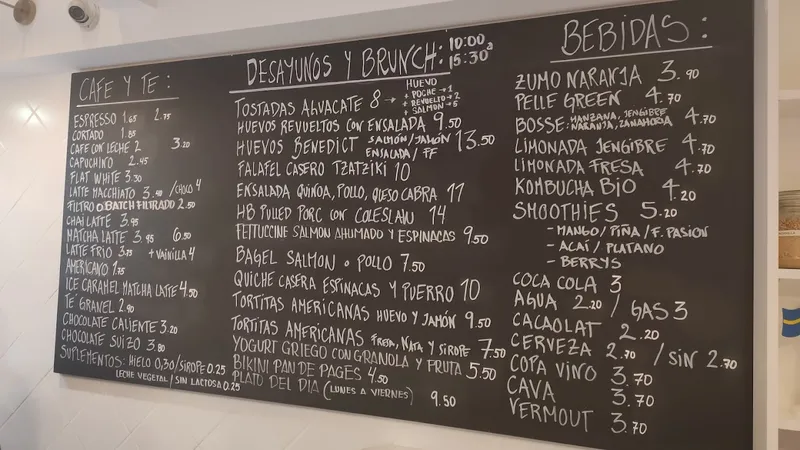 CAFE Y TE:
ESPRESSO 1.65 2.75
CORTADO 1.85
CAFE CON LECHE 2 3.20
CAPUCHINO 2.45
FLAT WHITE 3.30
LATTE MACCHIATO 3.40 /CHOCO 4
FILTRO O BATCH FILTRADO 2.50
CHAI LATTE 3.95
MATCHA LATTE 3.95 6.50
LATTE FRIO 3.75 + VAINILLA 4
AMERICANO 1.75
ICE CARAMEL MATCHA LATTE 4.50
TE GRANEL 2.90
CHOCOLATE CALIENTE 3.20
CHOCOLATE SUIZO 3.80
SUPLEMENTOS: HIELO 0,30/SIROPE 0.25
LECHE VEGETAL / SIN LACTOSA 0.25
DESAYUNOS Y BRUNCH: 10:00 a
15:30
HUEVO
TOSTADAS AGVACATE 8 → + POCHE → 1
+ REVUELTO → 2
+ SALMON → 5
HUEVOS REVUELTOS CON ENSALADA 9.50
HUEVOS BENEDICT SALMÓN/JAMÓN 13.50
ENSALADA / FF
FALAFEL CASERO TZATZIKI 10
ENSALADA QUINOA, POLLO, QUESO CABRA 11
HB PULLED PORC CON COLESLAW 14
FETTUCCINE SALMON AHUMADO Y ESPINACAS 9.50
BAGEL SALMON O POLLO 7.50
QUICHE CASERA ESPINACAS Y PUERRO 10
TORTITAS AMERICANAS HUEVO Y JAMÓN 9.50
TORTITAS AMERICANAS FRESA, NATA Y SIROPE 7.50
YOGURT GRIEGO CON GRANOLA Y FRUTA 5.50
BIKINI PAN DE PAGES 4.50
PLATO DEL DIA (LUNES A VIERNES) 9.50
BEBIDAS:
ZUMO NARANJA 3.90
PELLE GREEN 4.70
BOSSE: MANZANA, JENGIBRE 4.70
NARANJA, ZANAHORIA
LIMONADA JENGIBRE 4.70
LIMONADA FRESA 4.70
KOMBUCHA BIO 4.20
SMOOTHIES 5.20
- MANGO/PIÑA/F. PASION
- ACAÍ / PLATANO
- BERRYS
COCA COLA 3
AGUA 2.20 / GAS 3
CACAOLAT 2.20
CERVEZA 2.70 / SIN 2.70
COPA VINO 3.70
CAVA 3.70
VERMOUT 3.70